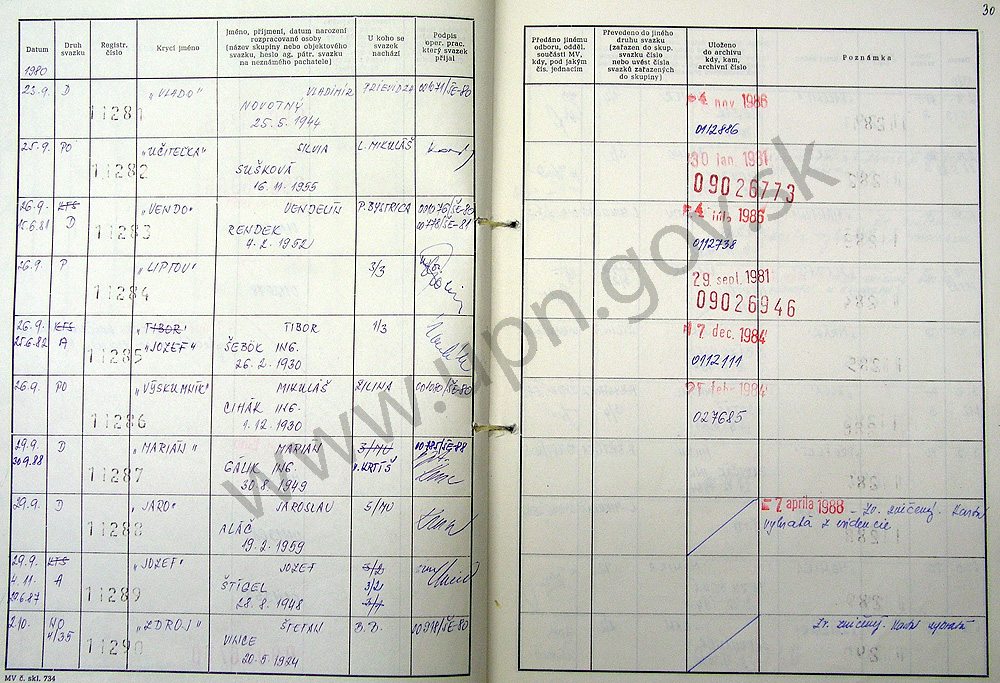 30
Datum
Druh svazku
Registr. číslo
Krycí jméno
Jméno, příjmení, datum narození rozpracované osoby (název skupiny nebo objektového svazku, heslo ag. pátr. svazku na neznámého pachatele)
U koho se svazek nachází
Podpis oper. prac. který svazek přijal
Předáno jinému odboru, odděl. součásti MV, kdy, pod jakým čís. jednacím
Převedeno do jiného druhu svazku (zařazen do skup. svazku číslo nebo uvést čísla svazků zařazených do skupiny)
Uloženo do archivu kdy, kam, archivní číslo
Poznámka
1980
23.9. D 11281 "VLADO" VLADIMÍR PRIEVIDZA 001071/ŠE-80
NOVOTNÝ
25.5.1944
nov 1986
0112886
25.9. PO 11282 "UČITEĽKA" SILVIA L. MIKULÁŠ
SUŠKOVÁ
16.11.1955
30 jan. 1981
09026773
26.9. KTS 11283 "VENDO" VENDELÍN P. BYSTRICA 001076/ŠE-80
15.6.81 D RENDEK 00778/ŠE-81
4.2.1952
1986
0112738
26.9. P 11284 "LIPTOV" 3/3
29. sept. 1981
09026946
26.9. KTS 11285 "TIBOR" TIBOR 1/3
25.6.82 A "JOZEF" ŠEBÖK ING.
26.2.1930
7 dec. 1984
0112111
26.9. PO 11286 "VÝSKUMNÍK" MIKULÁŠ ŽILINA 001080/ŠE-80
CIHÁK ING.
1.12.1930
febr 1984
027685
29.9. D 11287 "MARIÁN" MARIAN 3/MU 00785/ŠE-88
30.9.88 GÁLIK ING. V. KRTÍŠ
30.8.1949
29.9. D 11288 "JARO" JAROSLAV 5/MU
ALÁČ
19.2.1959
7 apríla 1988 - Zv. zničený. Karta
vybratá z evidencie
29.9. KTS 11289 "JOZEF" JOZEF 3/2
4.11. A ŠTÍGEL 3/2
28.8.1948 3/1
2.10. NO 11290 "ZDROJ" ŠTEFAN B.B. 00918/ŠE-80
4/35 VINCE
20.5.1924
Zv. zničený. Karta vybratá
MV č. skl. 734
www.upn.gov.sk